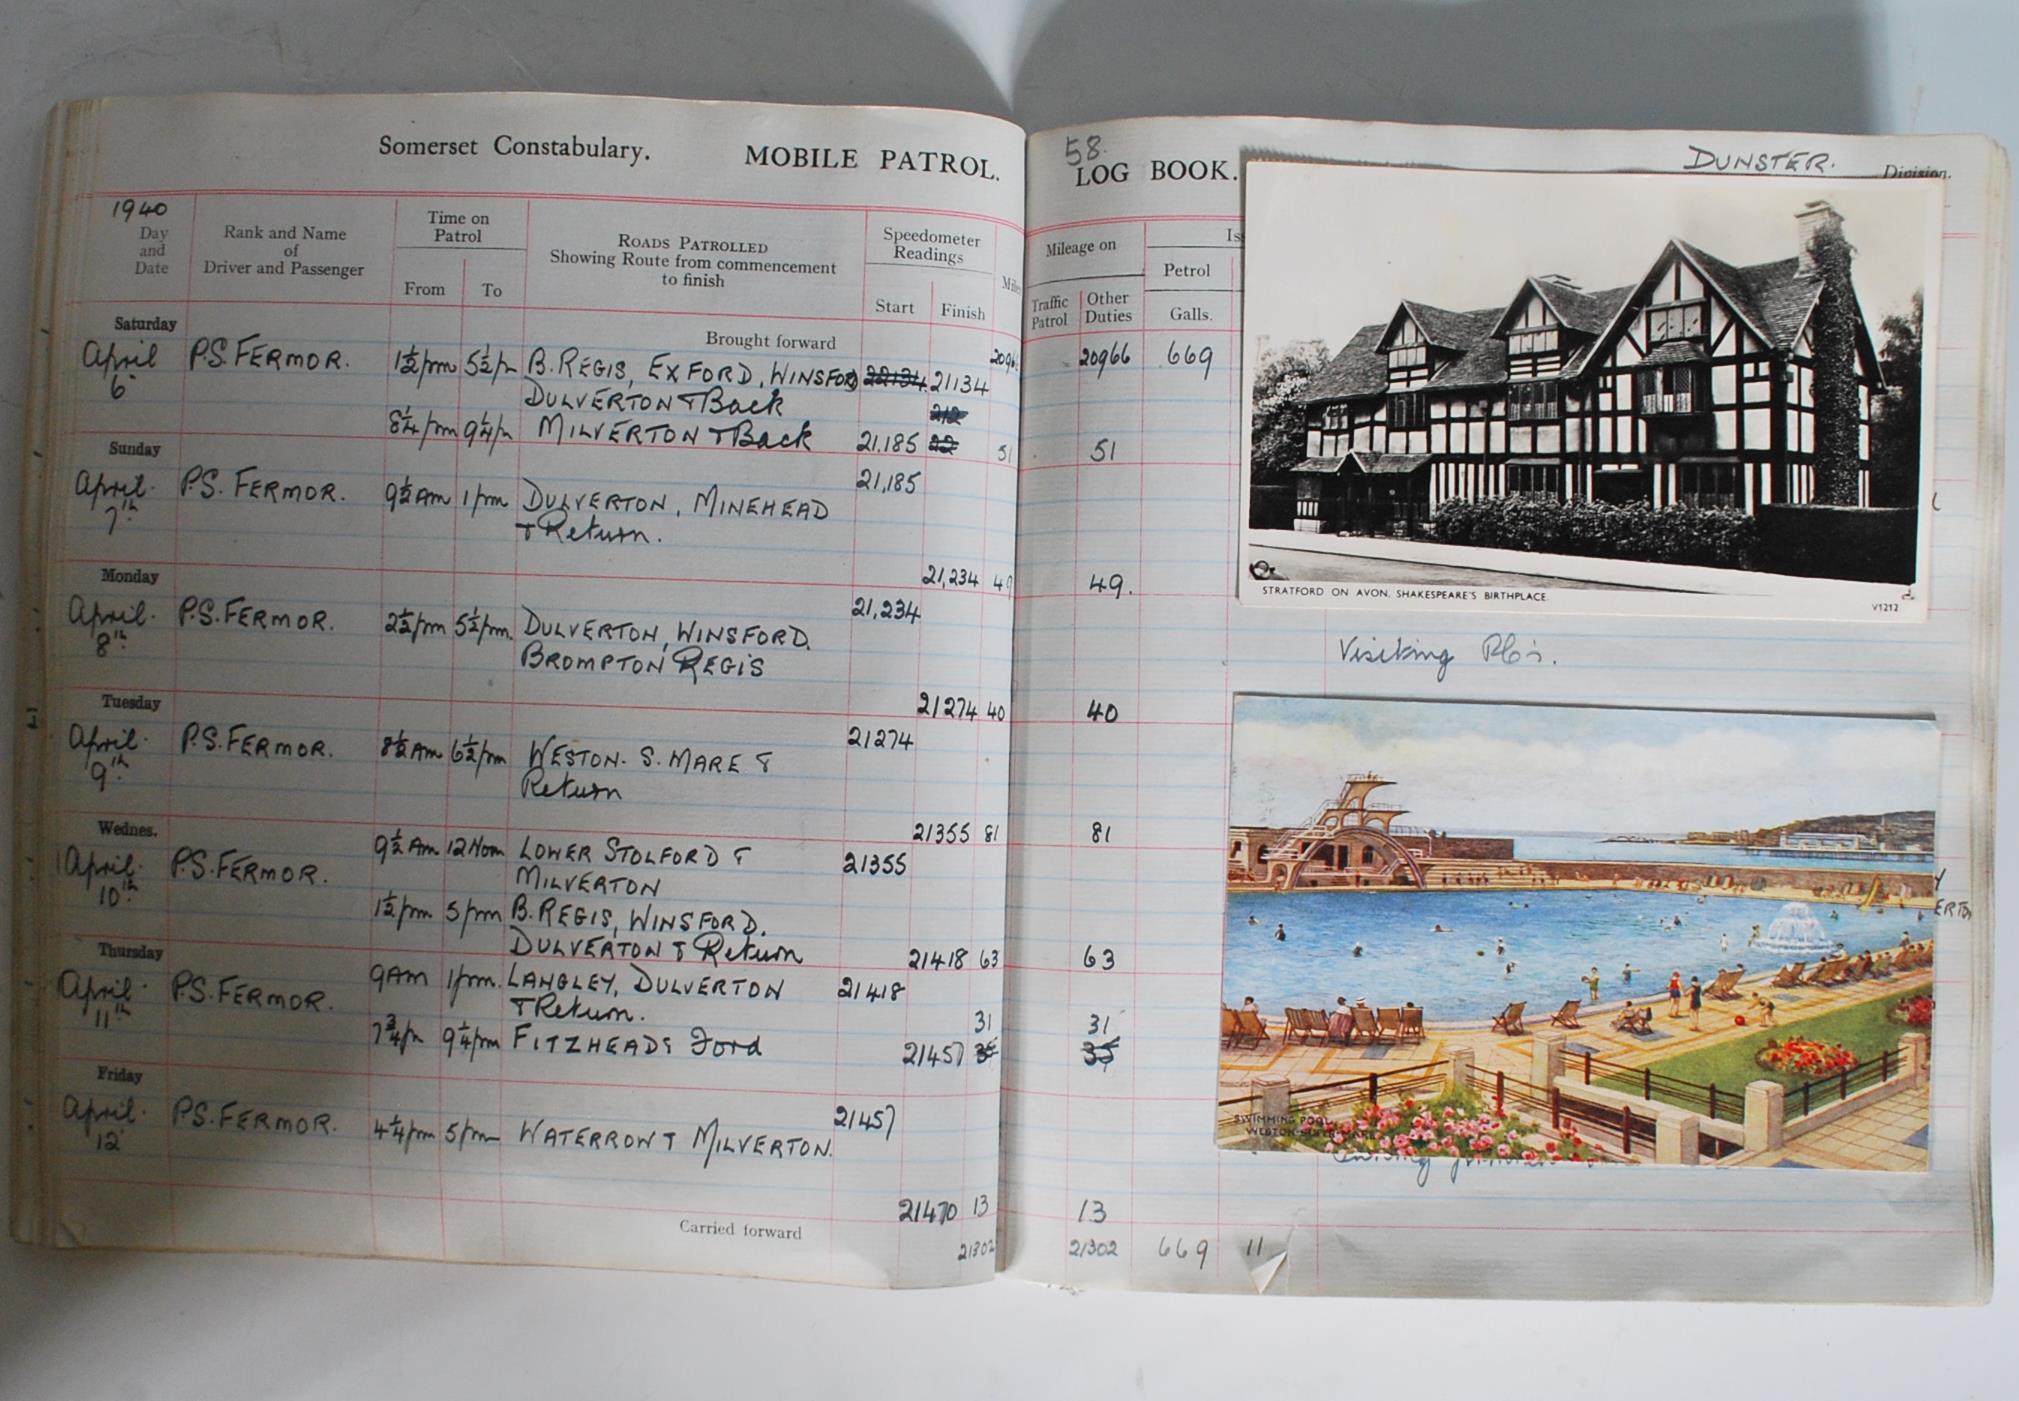 Somerset Constabulary. MOBILE PATROL.
58.
LOG BOOK.
DUNSTER. Division.
1940
Day and Date
Rank and Name of Driver and Passenger
Time on Patrol
From To
ROADS PATROLLED
Showing Route from commencement to finish
Speedometer Readings
Start Finish
Mileage on
Traffic Patrol
Other Duties
Petrol
Galls.
Brought forward
20966 669
Saturday
April 6 P.S. FERMOR. 1½pm 5½p B. REGIS, EXFORD, WINSFORD 21134
DULVERTON & Back
8¼pm 9¼p MILVERTON & Back 21,185 51 51
Sunday
April 7th P.S. FERMOR. 9½Am 1pm DULVERTON, MINEHEAD 21,185
& Return.
21,234 49 49.
Monday
April 8th P.S. FERMOR. 2½pm 5½pm. DULVERTON, WINSFORD. 21,234
BROMPTON REGIS
21274 40 40
Tuesday
April 9th P.S. FERMOR. 8½Am 6½pm WESTON. S. MARE & 21274
Return
21355 81 81
Wednes.
April 10th P.S. FERMOR. 9½Am 12Noon LOWER STOLFORD & 21355
MILVERTON
1½pm 5pm B. REGIS, WINSFORD.
DULVERTON & Return 21418 63 63
Thursday
April 11th P.S. FERMOR. 9Am 1pm. LANGLEY, DULVERTON 21418
& Return. 31 31
7¾p 9¼pm FITZHEAD & Ford 21457
Friday
April 12 P.S. FERMOR. 4¼pm 5pm WATERROW & MILVERTON. 21457
21470 13 13
Carried forward
21302 21302 669 11
STRATFORD ON AVON. SHAKESPEARE'S BIRTHPLACE.
V1212
Visiting PCs.
ERTON
SWIMMING POOL,
WESTON-SUPER-MARE